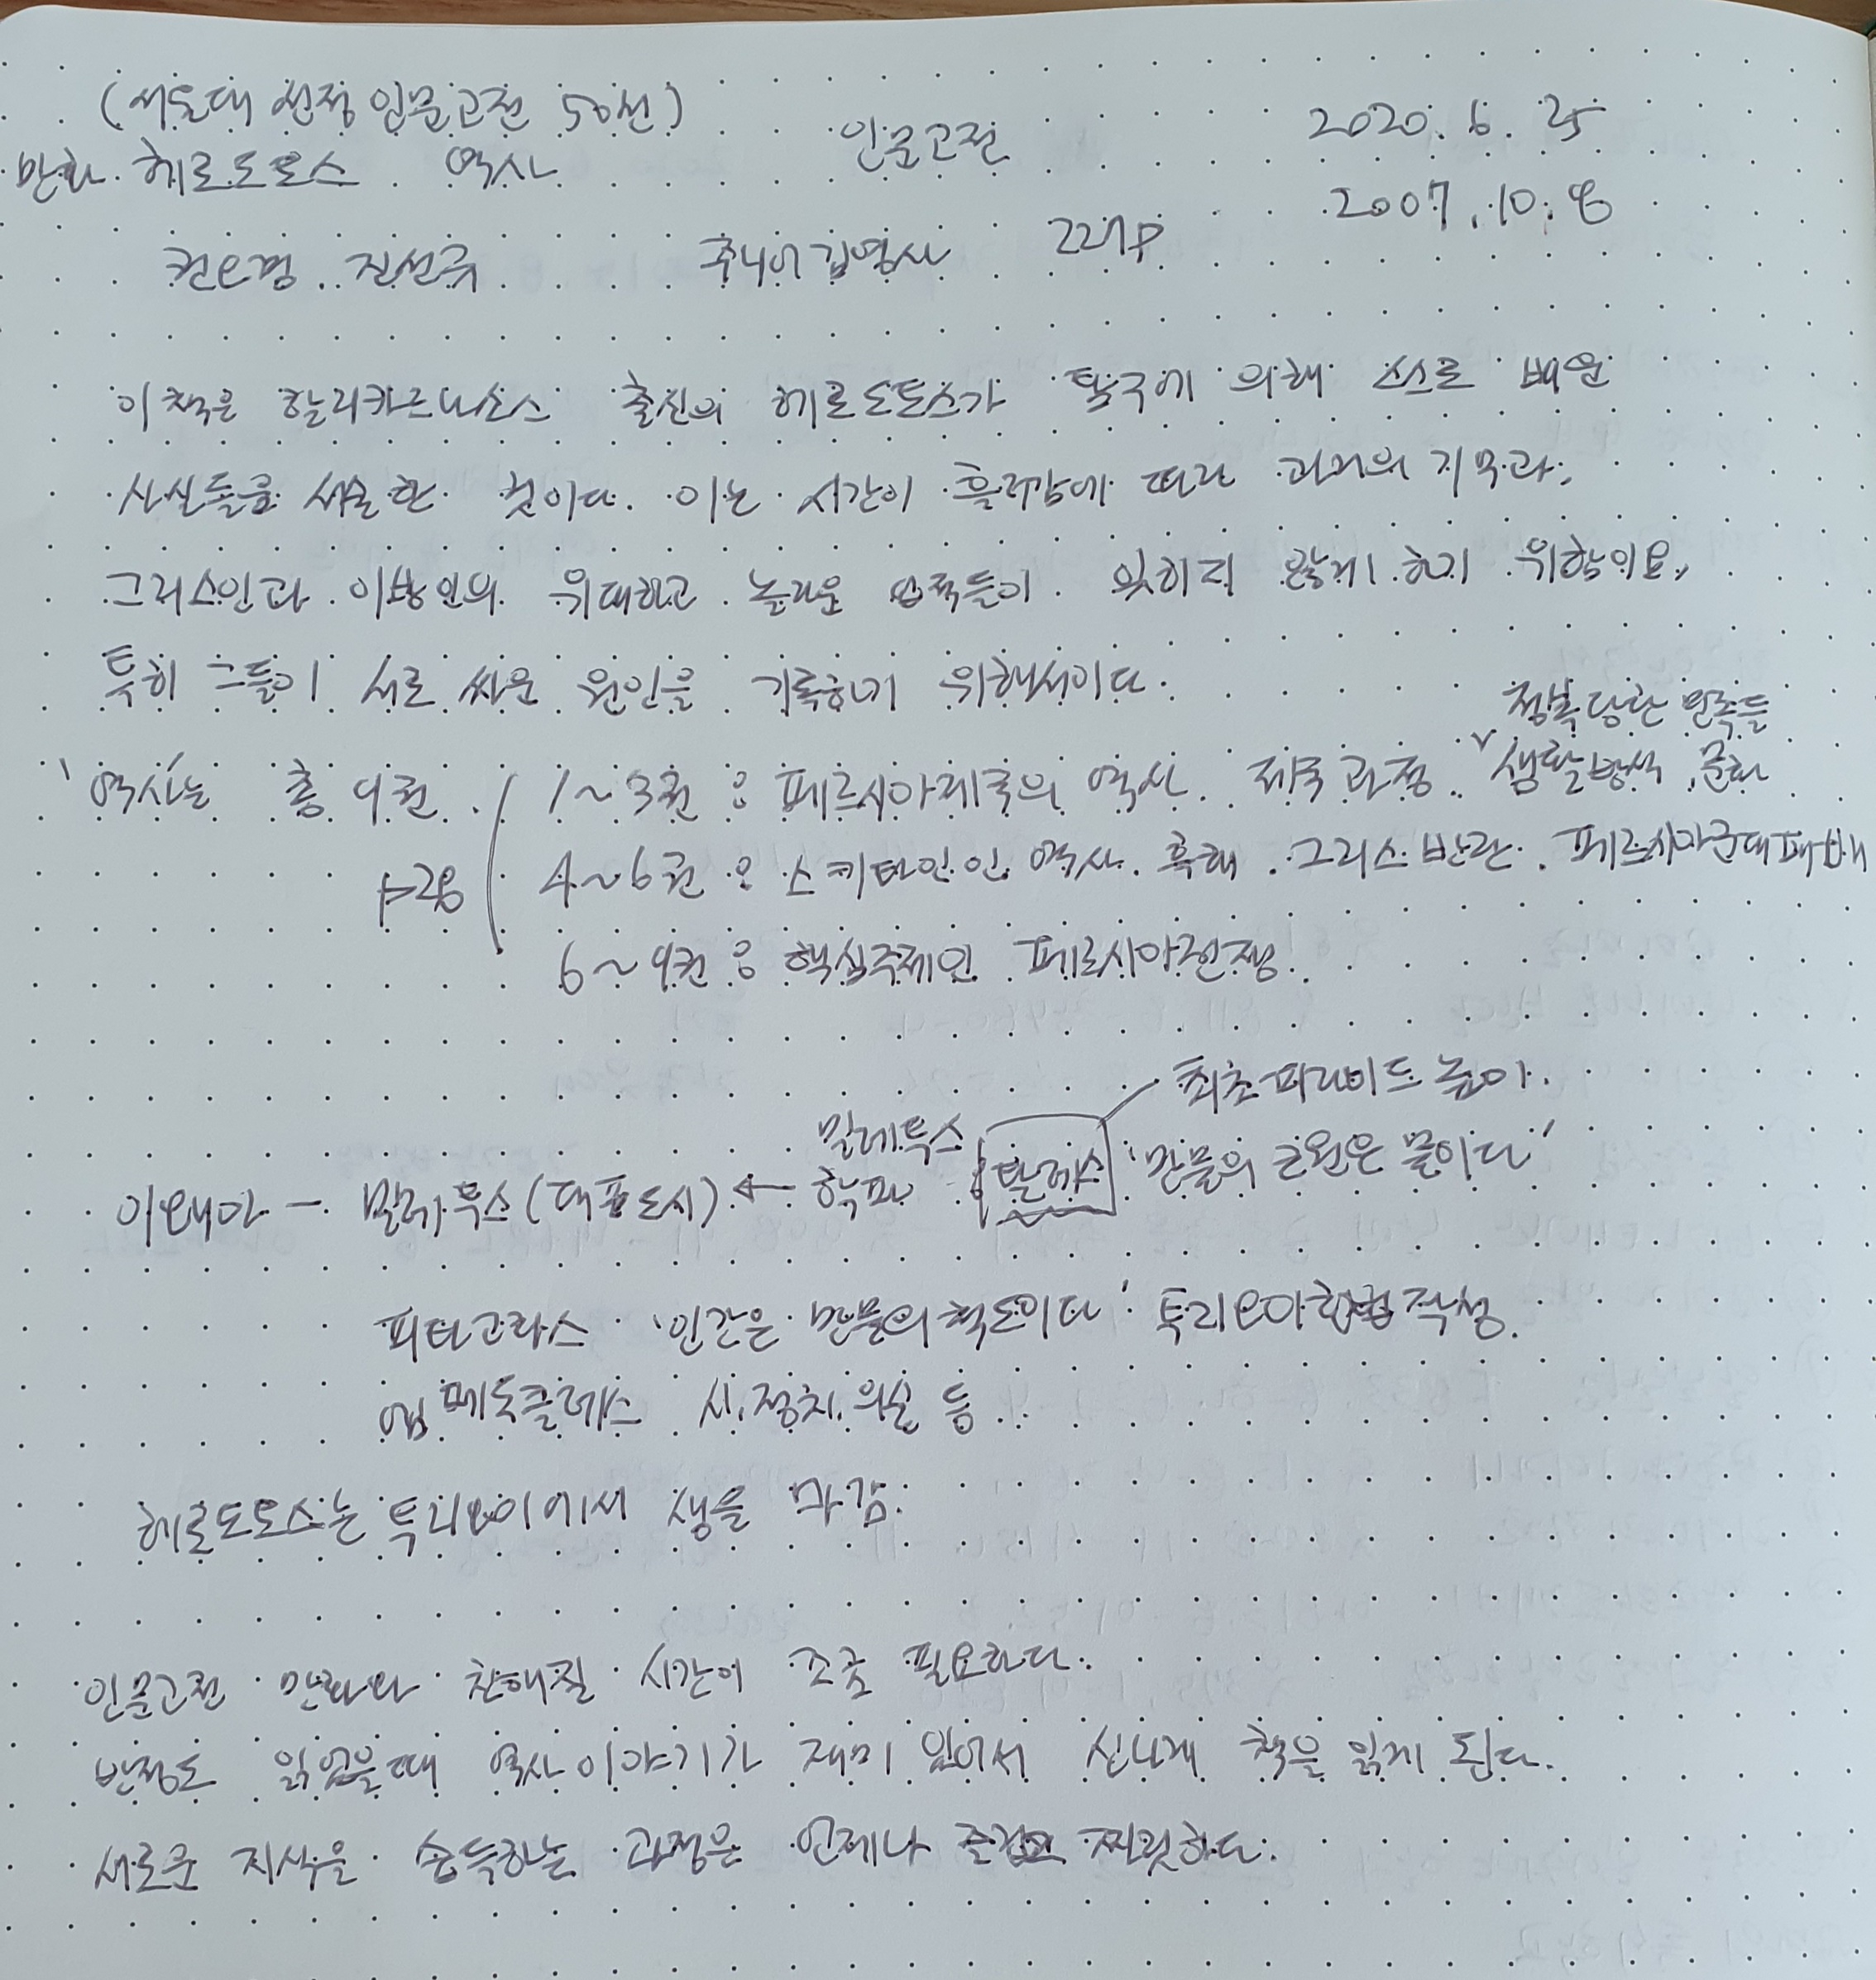 (서울대 선정 인문고전 50선)
만화 헤로도토스 역사 인문고전 2020. 6. 25
권오경. 진선규 주니어김영사 227p 2007. 10. 8
이 책은 할리카르나소스 출신의 헤로도토스가 탐구에 의해 스스로 배운
사실들을 서술한 것이다. 이는 시간이 흘러감에 따라 과거의 기억과,
그리스인과 이방인의 위대하고 놀라운 업적들이 잊히지 않게 하기 위함이요,
특히 그들이 서로 싸운 원인을 기록하기 위해서이다.
정복당한 민족들
'역사'는 총 9권. 1~3권 : 페르시아제국의 역사. 제국 과정. 생활방식, 문화
p28 4~6권 : 스키타인인 역사. 흑해. 그리스 반란. 페르시아군대패배
6~9권 : 핵심주제인 페르시아전쟁.
최초 피라미드 높이.
밀레투스
이오니아 - 밀레투스(대표도시) ← 학파 탈레스 '만물의 근원은 물이다'
피타고라스 '인간은 만물의 척도이다' 투리오이헌법 작성.
엠페도클레스 시. 정치. 의술 등
헤로도토스는 투리오이에서 생을 마감.
인문고전 만화와 친해질 시간이 조금 필요하다.
반정도 읽었을때 역사이야기가 재미 있어서 신나게 책을 읽게 된다.
새로운 지식을 습득하는 과정은 언제나 즐겁고 짜릿하다.